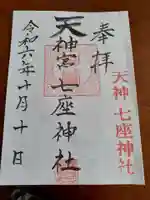 奉拝
天神 七座神社
天神宮七座神社
令和六年十月十日